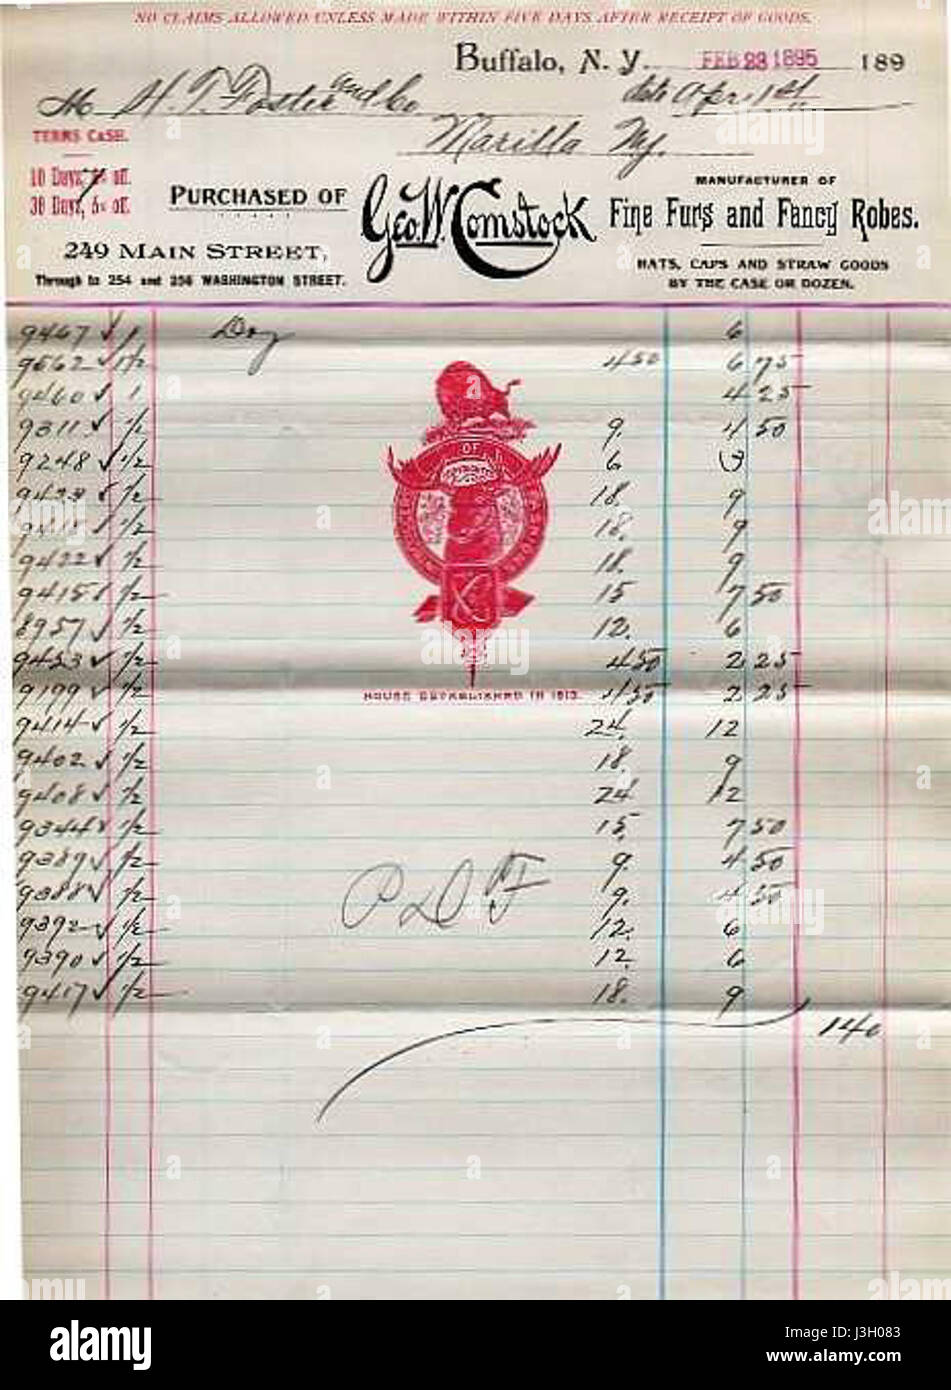 NO CLAIMS ALLOWED UNLESS MADE WITHIN FIVE DAYS AFTER RECEIPT OF GOODS.
Buffalo, N. Y. FEB 28 1895 189
M H. T. Foster and Co date April 1st
Marilla Ny.
TERMS CASH.
10 Days, off.
30 Days, 5% off.
PURCHASED OF Geo. W. Comstock
MANUFACTURER OF
Fine Furs and Fancy Robes.
249 MAIN STREET,
Through to 254 and 256 WASHINGTON STREET.
HATS, CAPS AND STRAW GOODS
BY THE CASE OR DOZEN.
9467 ✓ 1 Doz 6
9562 ✓ 1 1/2 4 50 6 75
9460 ✓ 1 4 25
9311 ✓ 1/2 9. 4 50
9248 ✓ 1/2 6 3
9423 ✓ 1/2 18. 9
9411 ✓ 1/2 18. 9
9422 ✓ 1/2 18. 9
9415 ✓ 1/2 15 7 50
8957 ✓ 1/2 12. 6
9453 ✓ 1/2 4 50 2 25
9199 ✓ 1/2 4 50 2 25
HOUSE ESTABLISHED IN 1813.
9414 ✓ 1/2 24. 12
9402 ✓ 1/2 18 9
9408 ✓ 1/2 24 12
9344 ✓ 1/2 15. 7 50
9389 ✓ 1/2 9. 4 50
9388 ✓ 1/2 9. 4 50
9392 ✓ 1/2 12. 6
9390 ✓ 1/2 12. 6
9417 ✓ 1/2 18. 9
140
alamy
Image ID: J3H083
www.alamy.com